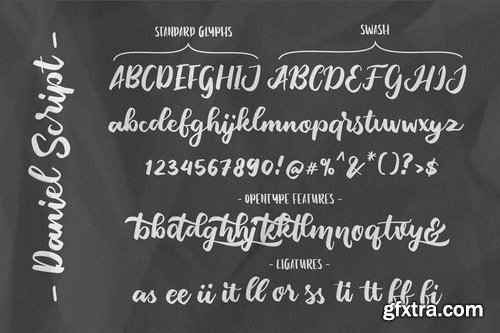 - Daniel Script -
STANDARD GLYPHS
SWASH
ABCDEFGHIJ ABCDEFGHIJ
abcdefghijklmnopqrstuvwxyz
1234567890!@#%^&*()?+
- OPENTYPE FEATURES -
- LIGATURES -
as ee ii it ll or ss ti tt ff fi
gfxtra.com